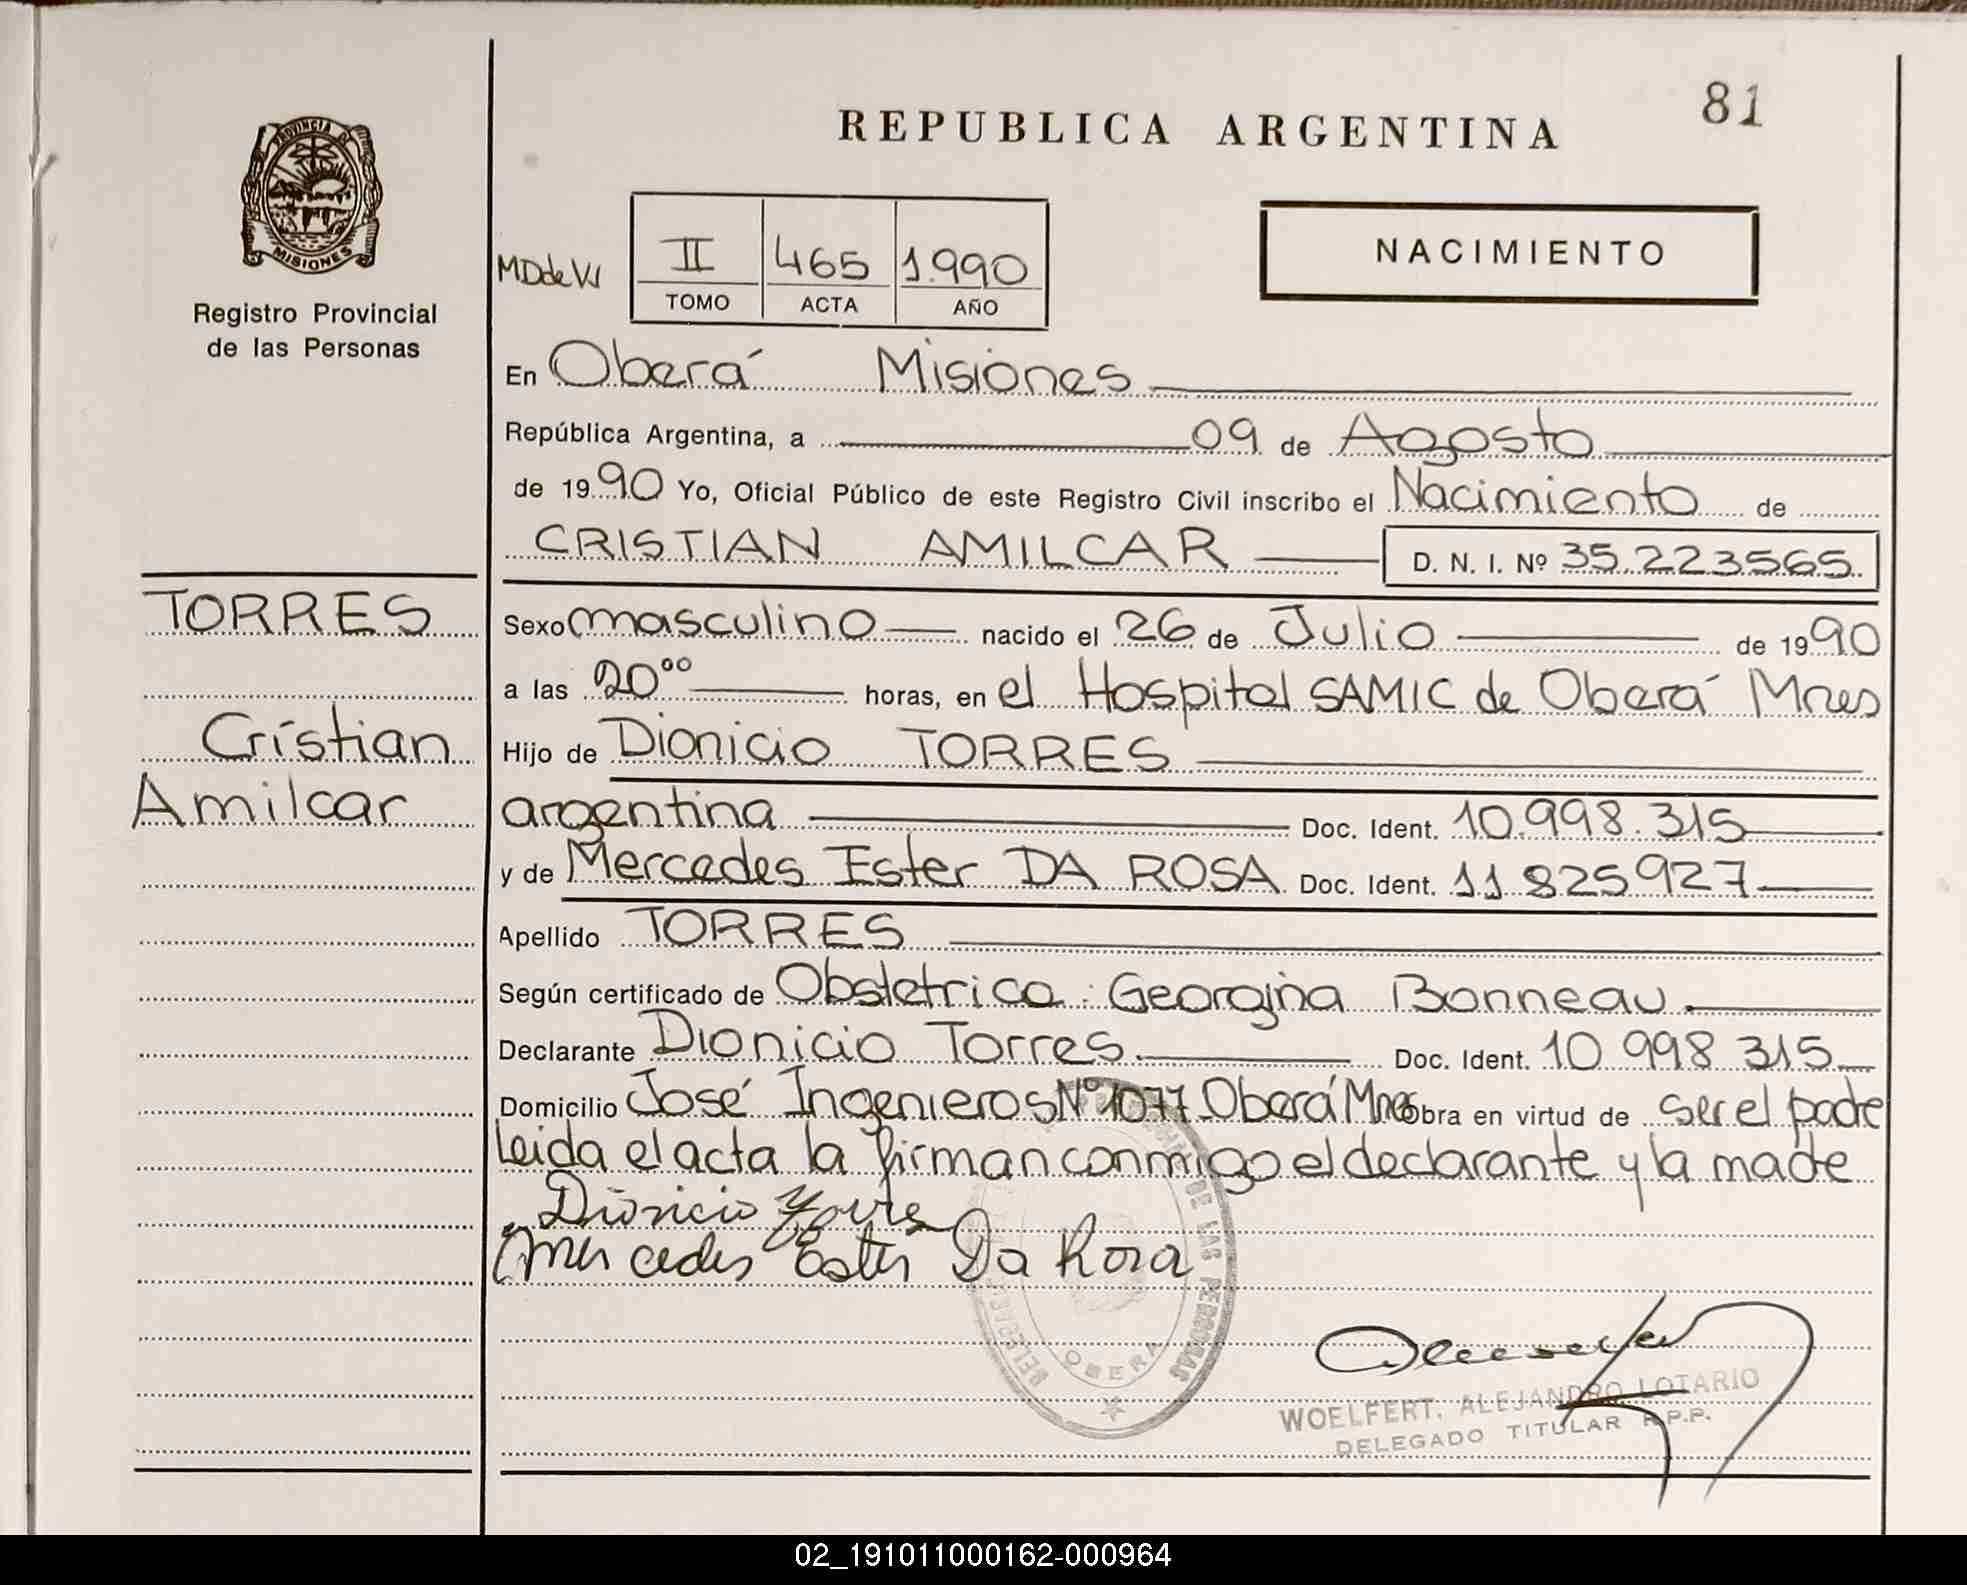 81
REPUBLICA ARGENTINA
PROVINCIA DE
MISIONES
Registro Provincial
de las Personas
NACIMIENTO
II 465 1.990
TOMO ACTA AÑO
En Oberá Misiones
República Argentina, a 09 de Agosto
de 1990 Yo, Oficial Público de este Registro Civil inscribo el Nacimiento de
CRISTIAN AMILCAR D. N. I. Nº 35.223565.
TORRES
Cristian
Amilcar
Sexo masculino nacido el 26 de Julio de 1990
a las 20⁰⁰ horas, en el Hospital SAMIC de Oberá Mnes
Hijo de Dionicio TORRES
argentina Doc. Ident. 10.998.315
y de Mercedes Ester DA ROSA Doc. Ident. 11 825927
Apellido TORRES
Según certificado de Obstetrica: Georgina Bonneau.
Declarante Dionicio Torres. Doc. Ident. 10 998 315
Domicilio José Ingenieros Nº 1077 Oberá Mnes obra en virtud de ser el padre
Leida el acta la firman conmigo el declarante y la madre
Dionicio Torres
Mercedes Ester Da Rosa
DE LAS PERSONAS
OBERA
WOELFERT, ALEJANDRO LOTARIO
DELEGADO TITULAR R.P.P.
02_191011000162-000964